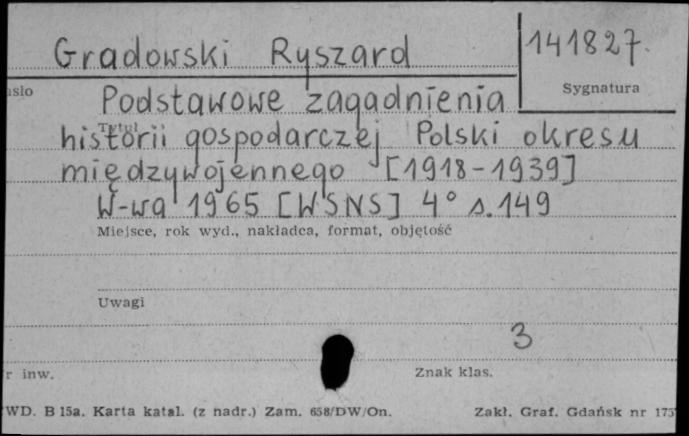 Gradowski Ryszard
141827.
Sygnatura
asło
Podstawowe zagadnienia
Tytuł
historii gospodarczej Polski okresu
międzywojennego [1918-1939]
W-wa 1965 [WSNS] 4° s. 149
Miejsce, rok wyd., nakładca, format, objętość
Uwagi
3
r inw.
Znak klas.
WD. B 15a. Karta katal. (z nadr.) Zam. 658/DW/On.
Zakł. Graf. Gdańsk nr 175